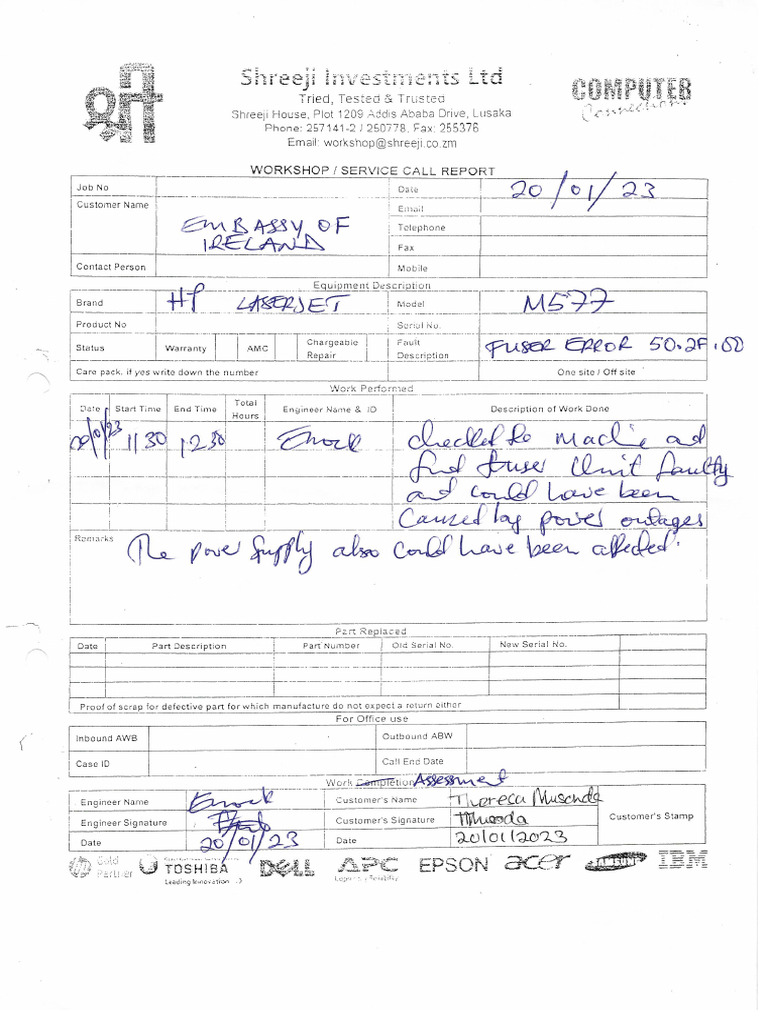 Shreeji Investments Ltd
Tried, Tested & Trusted
Shreeji House, Plot 1209 Addis Ababa Drive, Lusaka
Phone: 257141-2 / 250778, Fax: 255376
Email: workshop@shreeji.co.zm
COMPUTER
Connection.
WORKSHOP / SERVICE CALL REPORT
Job No Date 20/01/23
Customer Name EMBASSY OF IRELAND Email
Telephone
Fax
Contact Person Mobile
Equipment Description
Brand HP LASERJET Model M577
Product No Serial No.
Status Warranty AMC Chargeable Repair Fault Description FUSER ERROR 50.2F.00
Care pack, if yes write down the number One site / Off site
Work Performed
Date Start Time End Time Total Hours Engineer Name & ID Description of Work Done
20/01/23 1130 1230 Enock checked the Machine and
find fuser Unit faulty
and could have been
Caused by power outages
Remarks The power Supply also could have been affected.
Part Replaced
Date Part Description Part Number Old Serial No. New Serial No.
Proof of scrap for defective part for which manufacture do not expect a return either
For Office use
Inbound AWB Outbound ABW
Case ID Call End Date
Work Completion Assessment
Engineer Name Enock Customer's Name Theresa Musonda
Engineer Signature Customer's Signature TMusonda Customer's Stamp
Date 20/01/23 Date 20/01/2023
hp Gold Partner TOSHIBA Leading Innovation DELL APC EPSON acer IBM